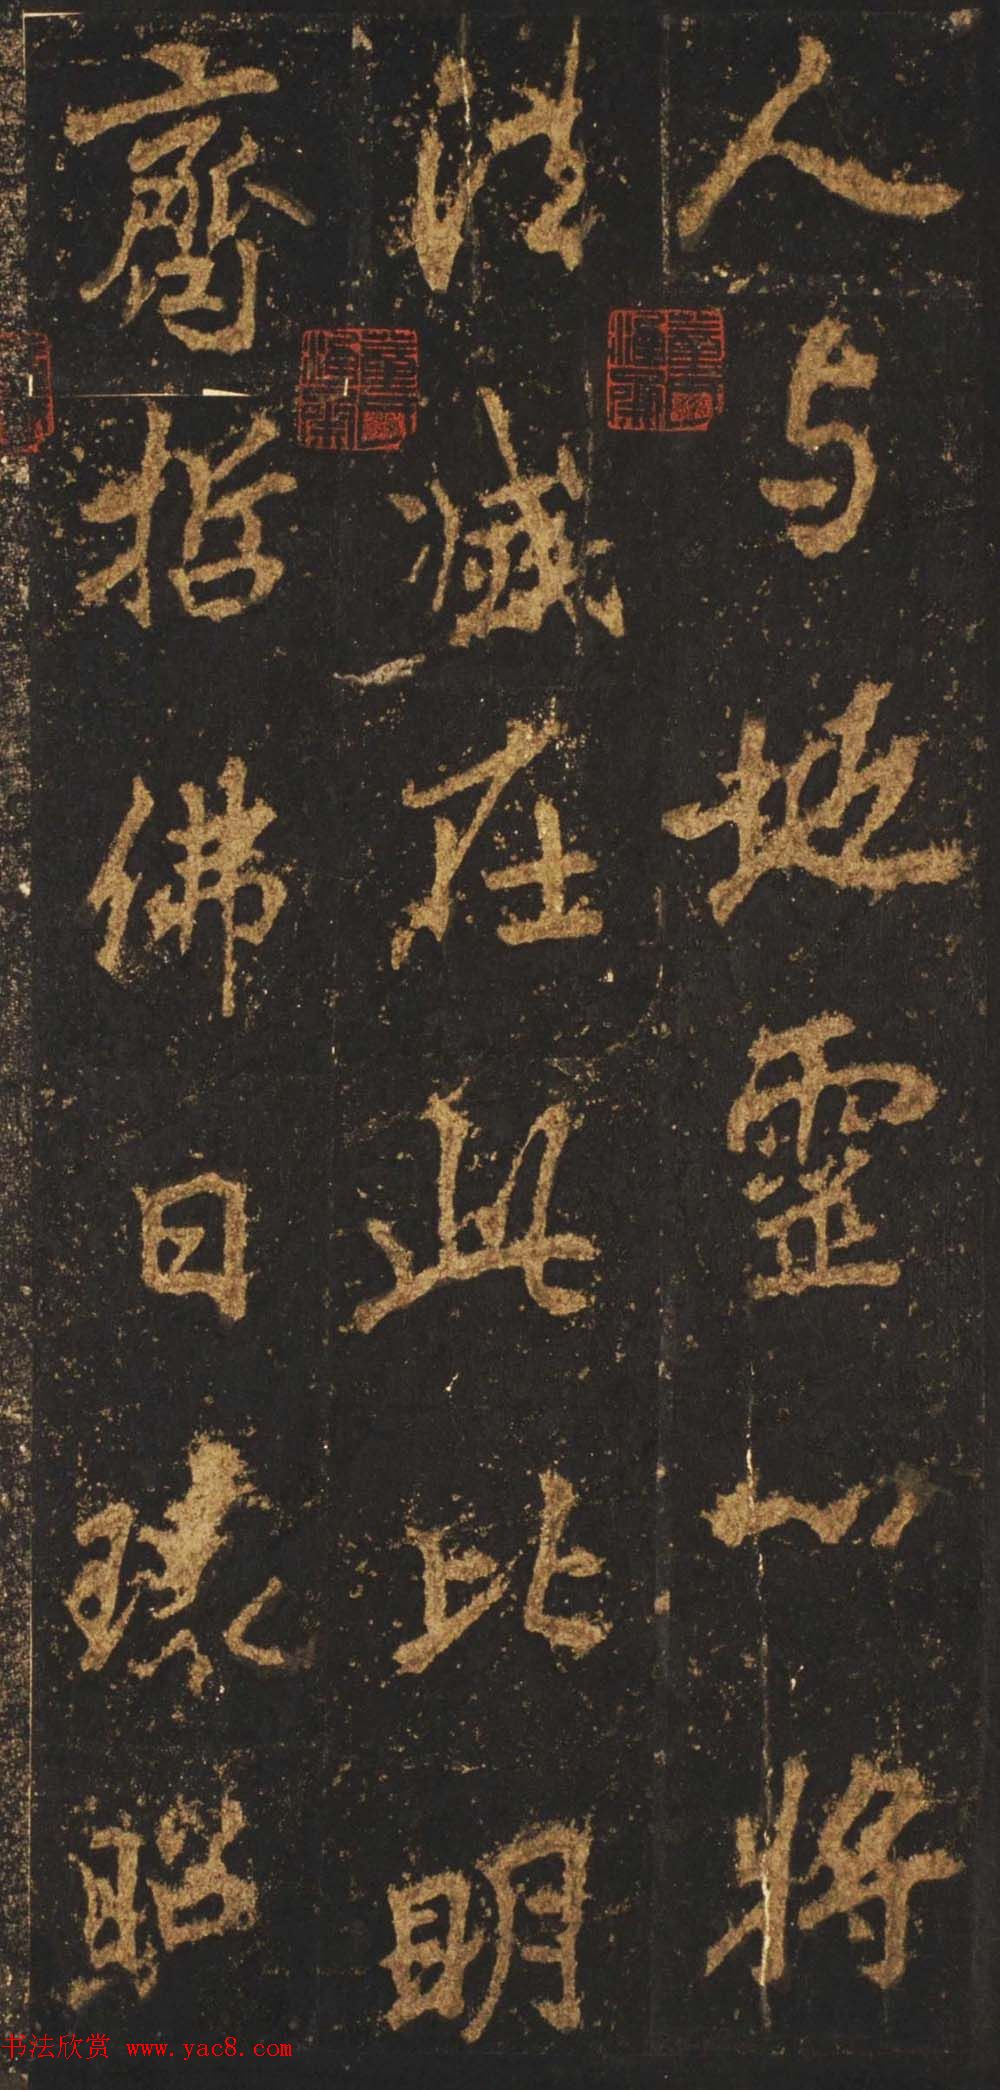 人与地靈心將
法滅在此比明
齊哲佛日環昭
书法欣赏 www.yac8.com